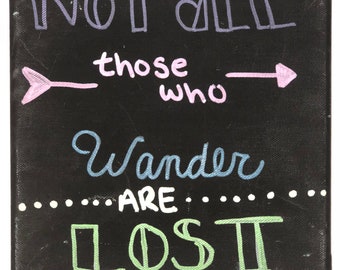 NOT all
those
who
Wander
ARE
LOST